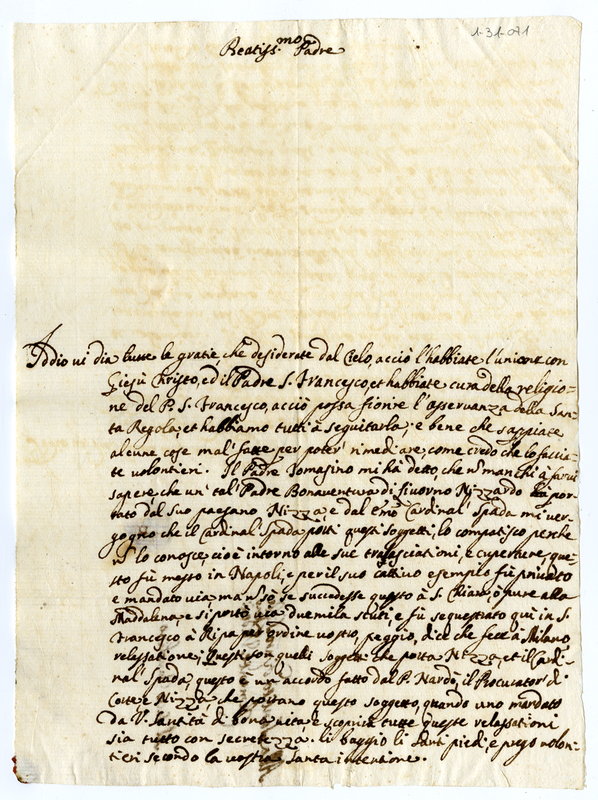 1-31-071
Beatiss.mo Padre
Iddio vi dia tutte le gratie, che desiderate dal Cielo, acciò l'habbiate l'unione con
Giesù Christo, ed il Padre S. Francesco, et habbiate cura della religio=
ne del P. S. Francesco, acciò possa fiorire l'osservanza della San=
ta Regola, et habbiamo tutti à seguitarla: e bene che sappiate
alcune cose mal' fatte per poter' rimediare, come credo che lo faccia=
te volontieri. Il Padre Tomasino mi hà detto, che non manchi à farvi
sapere che un' tal' Padre Bonaventura di Nizzardo hà por=
tato dal suo paesano Nizza e dal Em.o Cardinal' Spada mi ver=
gogno che il Cardinal' Spada porti questi soggetti, lo compatisco perche
non lo conosce, cioè intorno alle sue e que=
sto fù messo in Napoli, e per il suo cattivo esempio fù privato
e mandato via, ma non sò se succedesse questo à S. Chiara, ò pure alla
Maddalena, e si portò via duemila scuti, e fù sequestrato quì in S.
Francesco à Ripa per ordine vostro, peggio, dice che fece à Milano
relassatione, Questi son quelli soggetti che porta Nizza, et il Cardi=
nal' Spada, questo è un' accordo fatto dal P. Nardo, il Procurator' di
Corte e Nizza, che portano questo soggetto, quando uno mandato
da V. Santità di bona vita e scoprirà tutte queste relassationi
sia tutto con secretezza. li baggio li Santi piedi, e prego volon=
tieri secondo la vostra santa intentione.